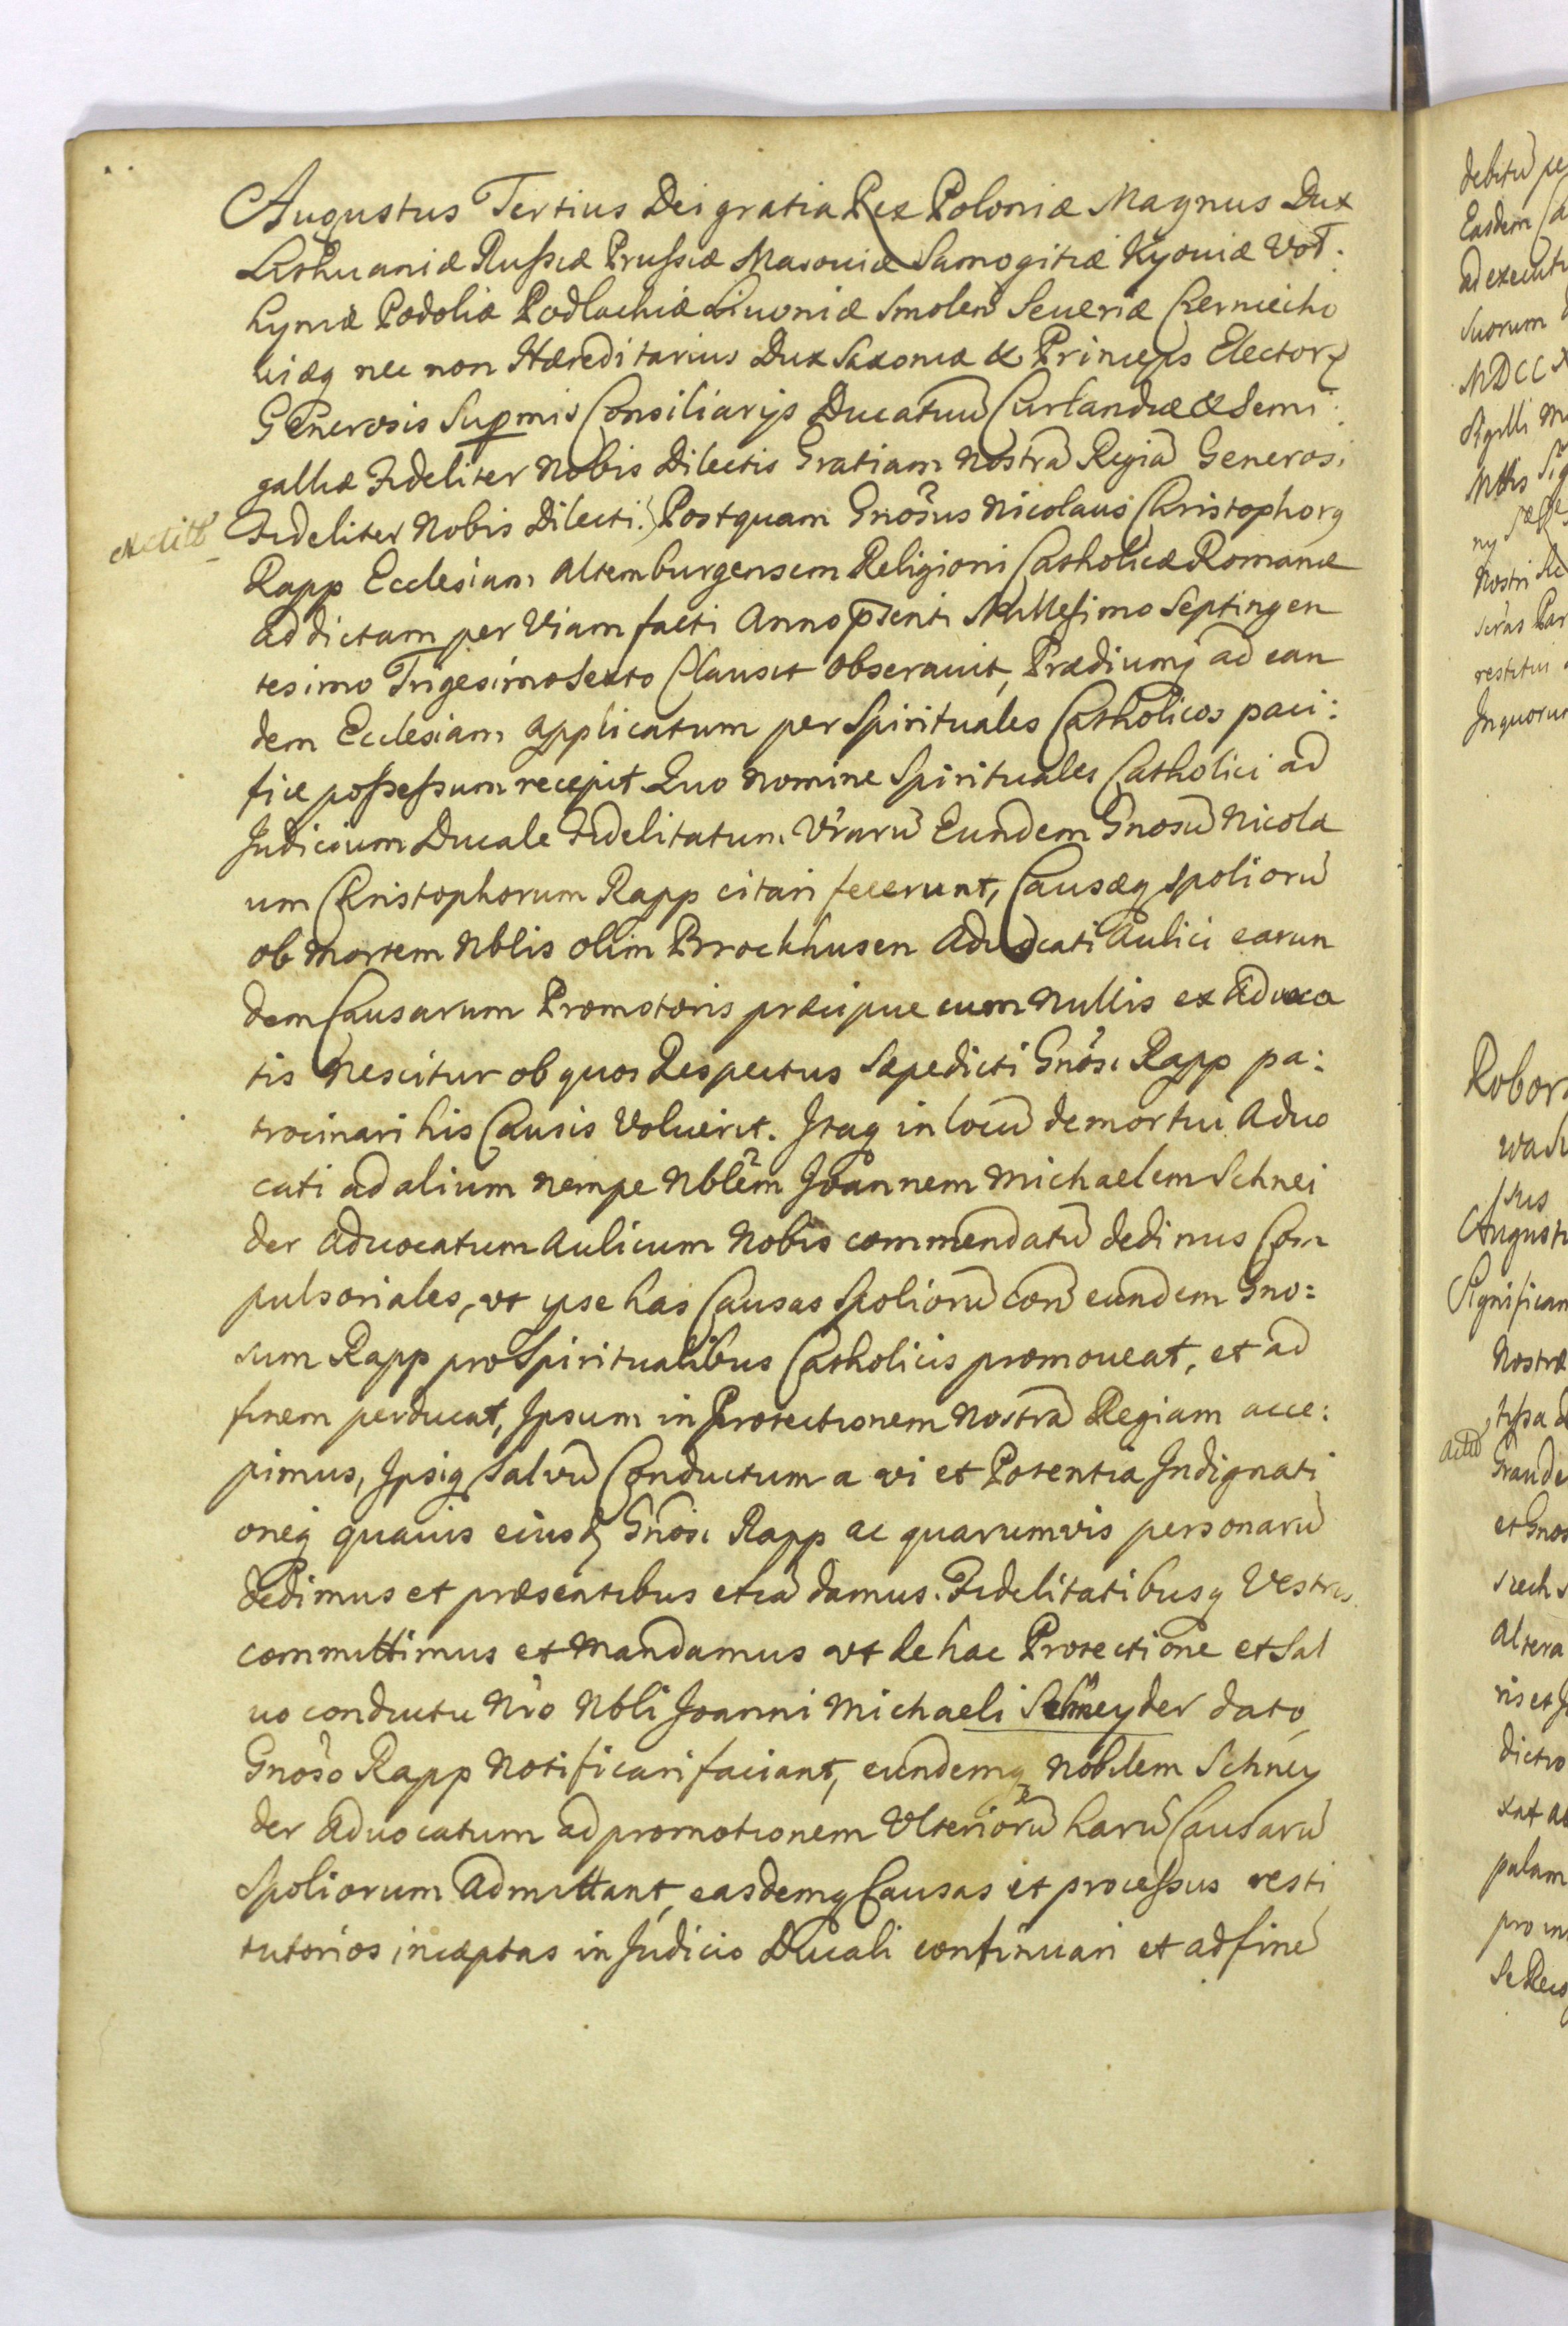 Augustus Tertius Dei gratia Rex Poloniæ Magnus Dux
Lithuaniæ Russiæ Prussiæ Masouiæ Samogitiæ Kyouiæ Vol:
hyniæ Podoliæ Podlachiæ Liuoniæ Smolen Seueriæ Czerniecho
uiæq nec non Hæreditarius Dux Saxoniæ & Princeps Elector
Generosis Supmis Consiliarijs Ducatuũ Curlandiæ & Semi:
galliæ Fideliter Nobis Dilectis Gratiam Nostrã Regiã Generosi
Fideliter Nobis Dilecti. Postquam Gnosus Nicolaus Christophorq
Rapp Ecclesiam Altemburgensem Religioni Catholicæ Romanæ
addictam per Viam facti Anno pẽnti Millesimo Septingen
tesimo Trigesimo Sexto Clausit obserauit, Prædiumq ad ean
dem Ecclesiam applicatum per Spirituales Catholicos paci:
fice possessum recepit. Quo nomine Spirituales Catholici ad
Judicium Ducale Fidelitatum Vrarũ Eundem Gnosũ Nicola
um Christophorum Rapp citari fecerunt, Causæq spoliorũ
ob mortem Nblis olim Brockhusen Aduocati Aulici earun
dem Causarum Promotoris præcipue cum nullis ex Aduoca
tis nescitur ob quos Respectus Sæpedicti Gnosi Rapp pa:
trocinari his Causis Voluerit. Itaq in locũ demortui Aduo
cati ad alium nempe Nblem Joannem Michaelem Schnei
der Aduocatum Aulicum Nobis commendatũ dedimus Com
pulsoriales, vt ipse has Causas Spoliorũ con eundem Gno=
sum Rapp pro Spiritualibus Catholicis promoueat, et ad
finem perducat, Ipsum in Protectionem Nostrã Regiam acce:
pimus, Ipsiq Saluũ Conductum a vi et Potentia Indignati
oneq quauis eiusd Gnosi Rapp ac quarumvis personarũ
dedimus et præsentibus etiã damus. Fidelitatibusq Vestris
committimus et Mandamus vt de hac Protectione et Sal
uo conductu Nro Nbli Joanni Michaeli Schneyder dato
Gnoso Rapp Notificari faciant, eundemq Nobilem Schney
der Aduocatum ad promotionem Vlteriorẽ harũ Causarũ
Spoliorum Admittant, easdemq Causas et processus resti
tutorios incæptas in Judicio Ducali continuari et ad finẽ